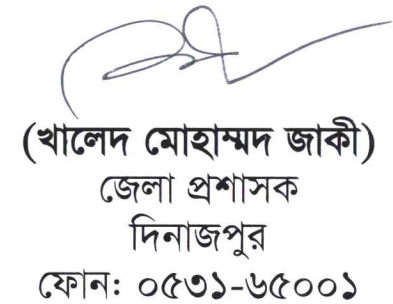 (খালেদ মোহাম্মদ জাকী)
জেলা প্রশাসক
দিনাজপুর
ফোন: ০৫৩১-৬৫০০১